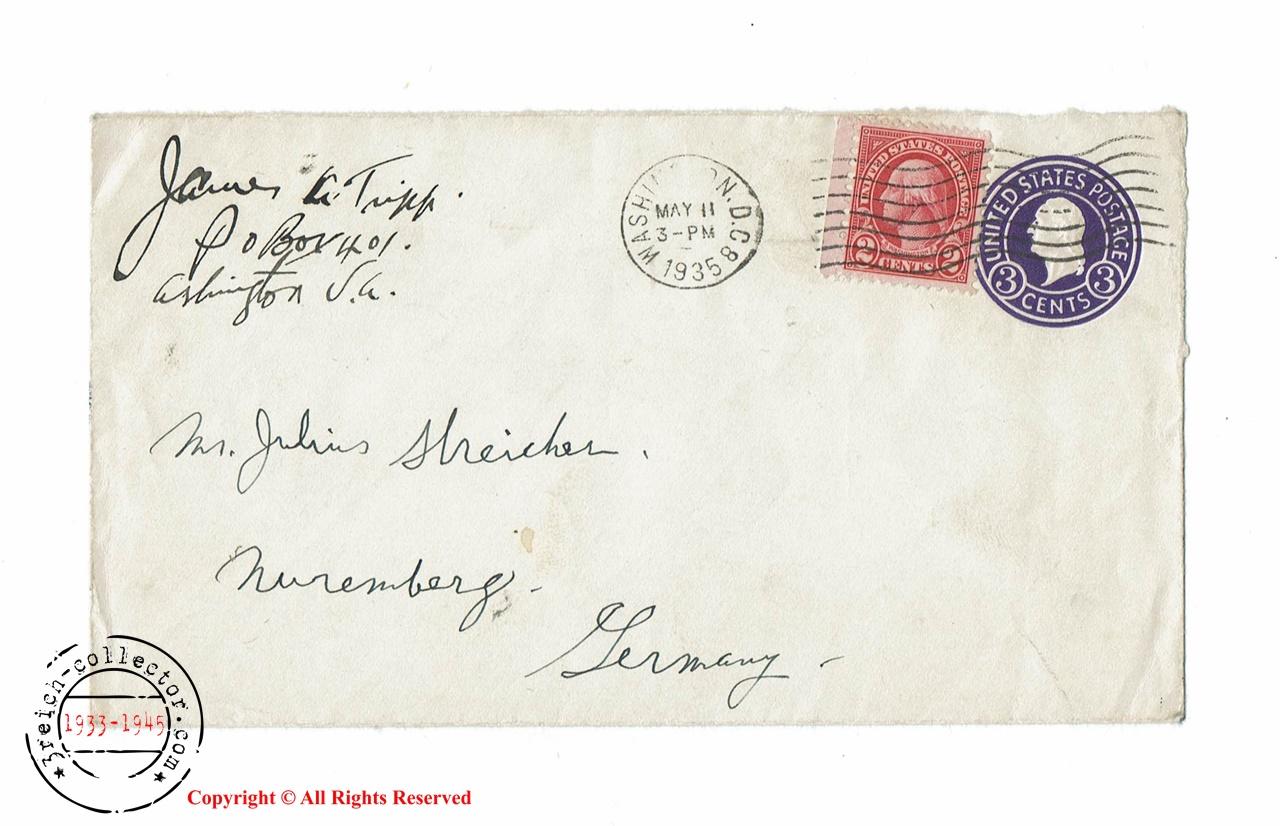 James A. Tripp.
P O Box 401.
Arlington Va.
WASHINGTON, D.C. 8
MAY 11
3-PM
1935
UNITED STATES POSTAGE
2 CENTS 2
UNITED STATES POSTAGE
3 CENTS 3
Mr. Julius Streicher.
Nuremberg-
Germany-
3reich-collector.com
1933-1945
Copyright © All Rights Reserved